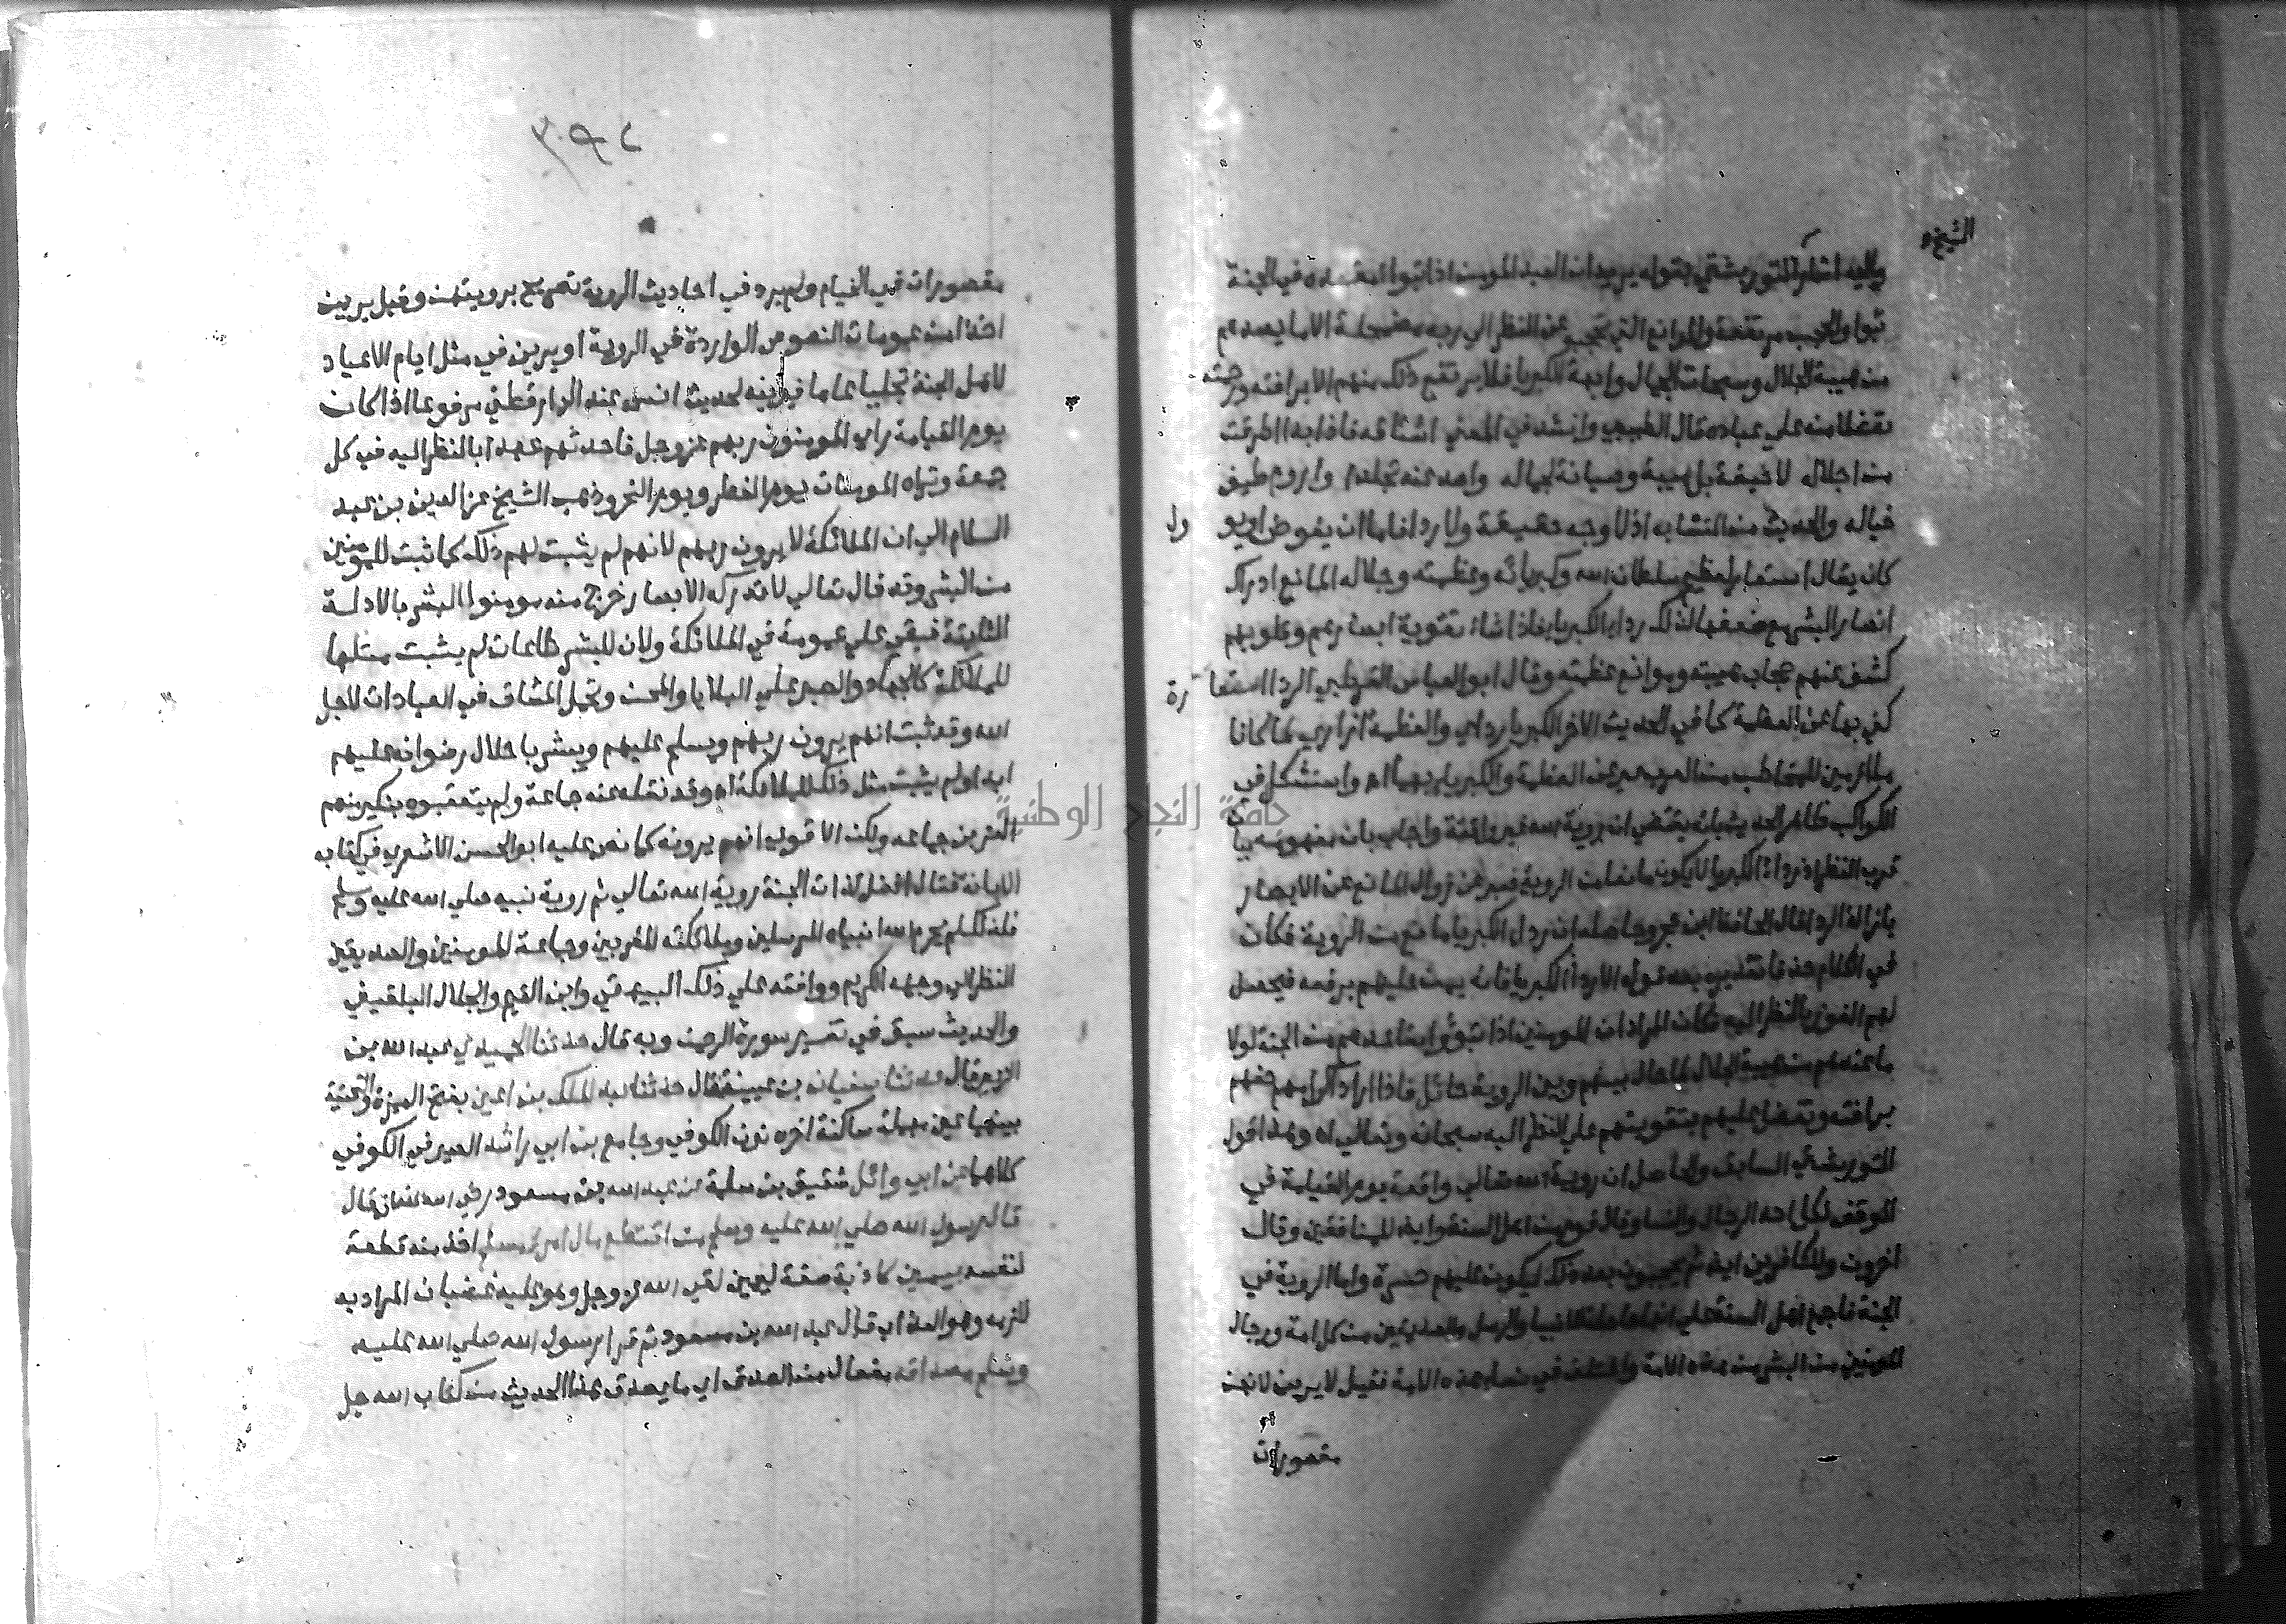 الشيخ
واليه اشار التوربشتي بقوله يريد ان العبد المومن اذا تبوا مقعده في الجنة
تبوا والحجب مرتفعة والموانع التي تحجبه عن النظر الي ربه مضمحلة الا ما يصدهم
من هيبة الجلال وسبحات الجمال وابهة الكبريا فلا يرتفع ذلك منهم الا برافته ورحمته
تفضلا منه علي عباده قال الطيبي وانشد في المعني اشتاقه فاذا بدا اطرقت
من اجلاله لا خيفة بل هيبة وصيانة لجماله واصد عنه تجلدا واروم طيف
خياله والحديث من المتشابه اذ لا وجه حقيقة ولا ردا فاما ان يفوض او يو ول
كان يقال استعار لعظيم سلطان الله وكبريائه وعظمته وجلاله المانع ادراك
ابصار البشر مع ضعفها لذلك ردا الكبريا فاذا شاء تقوية ابصارهم وقلوبهم
كشف عنهم حجاب هيبته وموانع عظمته وقال ابو العباس القرطبي الردا استعا رة
كني بها عن العظمة كما في الحديث الاخر الكبريا ردائي والعظمة ازاري
ملازمين للمخاطب من العرب عبر عن العظمة والكبريا بهما اه واستشكل في
الكواكب ظاهر الحديث بانه يقتضي ان روية الله غير واقعة واجاب بان مفهومه بيا
قرب النظر اذ رداء الكبريا لا يكون مانعا من الروية فعبر عن زوال المانع عن الابصار
بازالة الردا قال الحافظ ابن حجر وحاصله ان ردا الكبريا مانع من الروية فكان
في الكلام حذفا تقديره بعد قوله الا ردا الكبريا فانه يمن عليهم برفعه فيحصل
لهم الفوز بالنظر اليه فكان المراد ان المومنين اذا تبوؤا مقاعدهم من الجنة لولا
ما عندهم من هيبة الجلال لما حال بينهم وبين الروية حائل فاذا اراد اكرامهم حفهم
برافته وتفضل عليهم بتقويتهم علي النظر اليه سبحانه وتعالي اه وهذا قول
التوربشتي السابق والحاصل ان روية الله تعالي واقعة يوم القيامة في
الموقف لكل احد الرجال والنسا وقال قوم من اهل السنة وايضا للمنافقين وقال
اخرون وللكافرين ايضا ثم يحجبون بعد ذلك ليكون عليهم حسرة واما الروية في
الجنة فاجمع اهل السنة علي انها حاصلة للانبيا والرسل والصديقين من كل امة ورجال
المومنين من البشر من هذه الامة واختلف في نسا هذه الامة فقيل لا يرين لانهن
مقصورات
مقصورات في الخيام ولم يرد في احاديث الروية تصريح برويتهن وقيل يرين
اخذا من عمومات النصوص الواردة في الروية او يرين في مثل ايام الاعياد
لاهل الجنة تجليا عاما فيرينه لحديث انس عند الدارقطني مرفوعا اذا كان
يوم القيامة راي المومنون ربهم عز وجل فاحدثهم عهدا بالنظر اليه في كل
جمعة وتراه المومنات يوم الفطر ويوم النحر وذهب الشيخ عز الدين بن عبد
السلام الي ان الملائكة لا يرون ربهم لانهم لم يثبت لهم ذلك كما ثبت للمومنين
من البشر وقد قال تعالي لا تدركه الابصار خرج منه مومنوا البشر بالادلة
الثابتة فبقي علي عمومه في الملائكة ولان للبشر طاعات لم يثبت مثلها
للملائكة كالجهاد والصبر علي البلايا والمحن وتحمل المشاق في العبادات لاجل
الله وقد ثبت انهم يرون ربهم ويسلم عليهم ويبشرهم باحلال رضوانه عليهم
ابدا ولم يثبت مثل ذلك للملائكة اه وقد نقله عنه جماعة ولم يتعقبوه بنكير منهم
العز بن جماعة ولكن الاقوي انهم يرونه كما نص عليه ابو الحسن الاشعري في كتابه
الابانة فقال افضل لذات الجنة روية الله تعالي ثم روية نبيه صلي الله عليه وسلم
فلذلك لم يحرم الله انبياه المرسلين وملائكته المقربين وجماعة المومنين والصديقين
النظر الي وجهه الكريم ووافقه علي ذلك البيهقي وابن القيم والجلال البلقيني
والحديث سبق في تفسير سورة الرحمن وبه قال حدثنا الحميدي عبد الله بن
الزبير قال حدثنا سفيان بن عيينة قال حدثنا عبد الملك بن اعين بفتح الهمزة والتحتية
بينهما عين مهملة ساكنة اخره نون الكوفي وجامع بن ابي راشد الصيرفي الكوفي
كلاهما عن ابي وائل شقيق بن سلمة عن عبد الله بن مسعود رضي الله عنه انه قال
قال رسول الله صلي الله عليه وسلم من اقتطع مال امرئ مسلم اخذ منه قطعة
لنفسه بيمين كاذبة صفة ليمين لقي الله عز وجل وهو عليه غضبان المراد به
لازمه وهو العذاب قال عبد الله بن مسعود ثم قرا رسول الله صلي الله عليه
وسلم مصداقه مفعال من الصدق اي ما يصدق هذا الحديث من كتاب الله جل
جامعة النجاح الوطنية